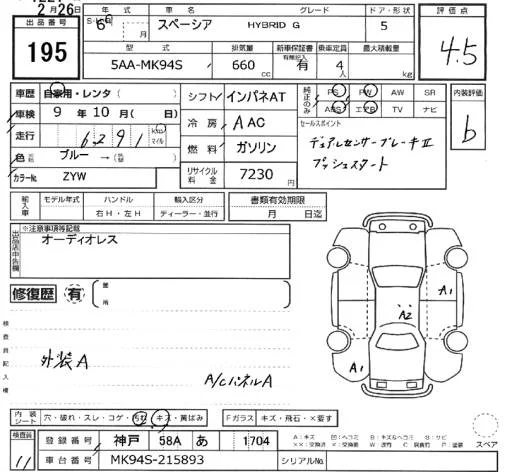 2月26日
出品番号 195
年式 車名 グレード ドア・形状 評価点
6年 月 スペーシア HYBRID G 5 4.5
型式 排気量 新車保証書 有無記入 乗車定員 最大積載量
5AA-MK94S 660 cc 有 4人 kg
車歴 自家用・レンタ( ) シフト インパネAT 純正のみ PS PW AW SR 内装評価
ABS エアB TV ナビ b
車検 9年10月( 日) 冷房 A AC セールスポイント
走行 6291 km マイル デュアルセンサーブレーキII
燃料 ガソリン プッシュスタート
色 ブルー→( )
カラーNo. ZYW リサイクル料金 7230
輸入車 モデル年式 ハンドル 輸入区分 書類有効期限
右H・左H ディーラー・並行 月 日迄
出品店申告欄 ※注意事項等記載
オーディオレス
修復歴 有 箇所
A1
A2
A1
検査員記入欄
外装A
A/CパネルA
内装シート 穴・破れ・スレ・コゲ・汚れ キズ・黄ばみ Fガラス キズ・飛石・×要す
検査員 11 登録番号 神戸 58A あ 1704
車台番号 MK94S-215893 シリアルNo.
スペア